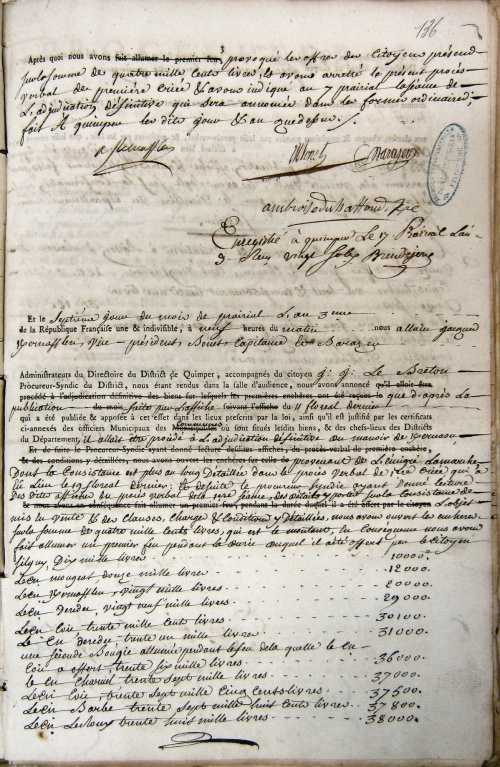 136
3
Après quoi nous avons fait allumer le premier feu, provoqué les offres des Citoyens présens
sur la somme de quatre mille cents livres, & avons arreté le présent procès
verbal de première criée & avons indiqué au 7 prairial la séance de
L'adjudication définitive qui sera annoncée dans les formes ordinaires,
fait A quimper les dits jour & an que dessus ./.
Enregistré à quimper Le 17 Prairial L'an
3. Reçu vingt sols
Et le Septième jour du mois de prairial L'an 3eme
de la République Française une & indivisible, à neuf heures du matin nous allain jacques
Kernafflen, vice-président, Bonnet, Capitaine &
Administrateurs du Directoire du District de Quimper, accompagnés du citoyen Le Breton
Procureur-Syndic du District, nous étant rendus dans la salle d'audience, nous avons annoncé qu'il alloit être
procédé à l'adjudication définitive des biens sur lesquels les premières enchères ont été reçues le que d'après la
publication du mois faite par l'affiche suivant l'affiche du 11 floreal dernier
qui a été publiée & apposée à cet effet dans les lieux prescrits par la loi, ainsi qu'il est justifié par les certificats
ci-annexés des officiers Municipaux des Communes où sont situés lesdits biens, & des chefs-lieux des Districts
du Département, il alloit être procédé à L'adjudication définitive du manoir de
Et de suite le Procureur-Syndic ayant donné lecture desdites affiches, du procès-verbal de première enchère,
& des conditions y détaillées, nous avons ouvert les enchères sur celles de provenant de L'émigré Lamarche
Dont la Consistance est plus au long Détaillée dans le procès verbal de 1ere Criée qui a
Eu Lieu le 19 floreal dernier; Et de suite le procureur syndic ayant donné lecture
Des dittes affiches du procès verbal de la 1ere séance, des détails y portés sur la Consistance de
& nous avons en conséquence fait allumer un premier feu, pendant la durée duquel il a été offert par le citoyen L'objet
mis en vente & des clauses, charges & Conditions y détaillées, nous avons ouvert les enchères
sur la somme de quatre mille cents livres, qui est le montant, en Conséquence nous avons
fait allumer un premier feu pendant la durée duquel il a été offert par le Citoyen
Dix mille livres 10000.
Le Cn mougeat douze mille livres 12000.
Le Cn Kernafflen, vingt mille livres 20000.
Le Cn Deredec, vingt neuf mille livres 29000.
Le Cn Loie trente mille cents livres 30100.
Le Cn Deredec trente un mille livres 31000.
une seconde Bougie allumée pendant le feu de laquelle le Cn
Loie a offert trente six mille livres 36000.
Le Cn trente sept mille livres 37000.
Le Cn Loie trente sept mille Cinq Cents livres 37500.
Le Cn Barbe trente sept mille huit Cents livres 37800.
Le Cn trente huit mille livres 38000.